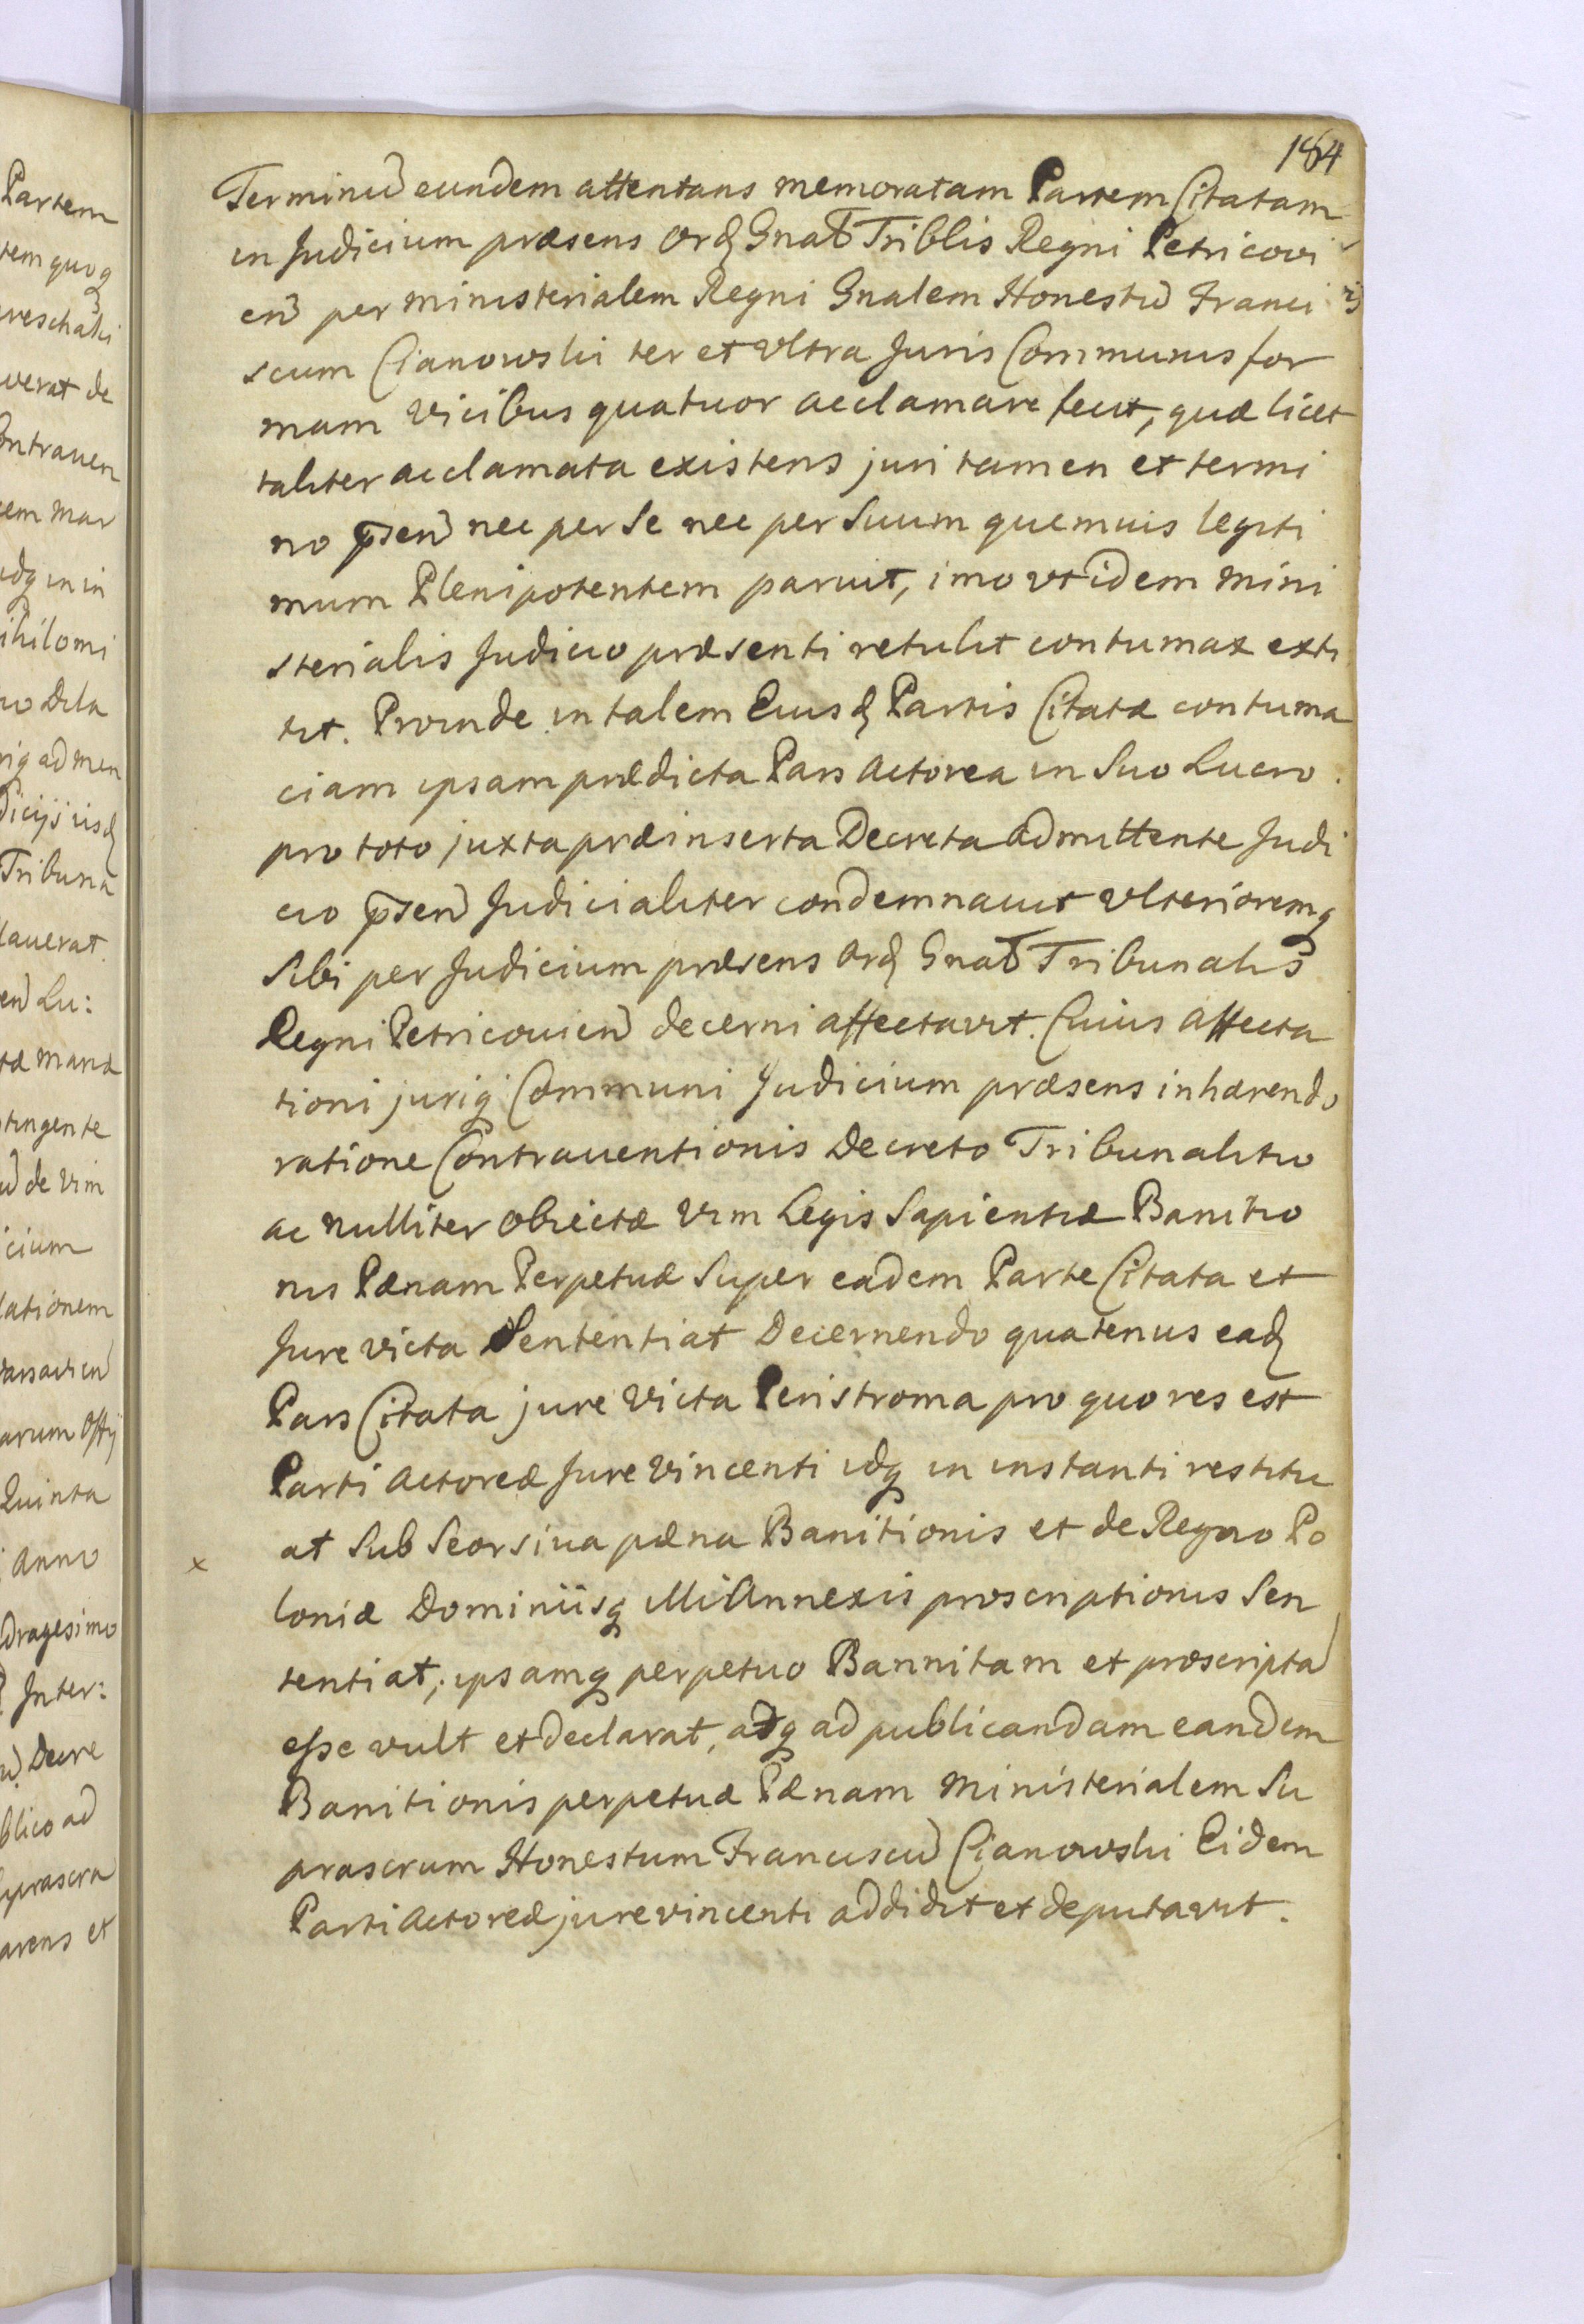 184
Partem
tem quoq
verat de
Contraven
cem Mar
idq in in
ihilomi
Tribuna
laverat
en Lu:
tæ Mana
tingente
de vim
icium
lationem
Quinta
Anno
dragesimo
Inter:
Decre
blico ad
uprascra
arens et
Terminū eundem attentans memoratam Partem Citatam
in Judicium præsens Ord Gnał Triblis Regni Petricovi
en per ministerialem Regni Gnalem Honestū Franci
scum Cianowski ter et vltra Juris Communis for
mam vicibus quatuor acclamare fecit, quæ licet
taliter acclamata existens juri tamen et termi
no p̄sen nec per Se nec per Suum quemuis legiti
mum Plenipotentem paruit, imo vt idem Mini
sterialis Judicio præsenti retulit contumax exti
tit. Proinde in talem Eiusd Partis Citatæ contuma
ciam ipsam prædicta Pars Actorea in Suo Lucro
pro toto juxta præinserta Decreta admittente Judi
cio p̄sen Judicialiter condemnauit vlterioremq
Sibi per Judicium præsens Ord Gnał Tribunalis
Regni Petricouien decerni affectavit. Cuius affecta
tioni juriq Communi Judicium præsens inhærendo
ratione Contrauentionis Decreto Tribunalitio
ac nulliter obiectæ Vim Legis Sapientiæ Banitio
nis Pænam Perpetuæ Super eadem Parte Citata et
Jure victa Sententiat Decernendo quatenus ead
Pars Citata jure victa Peristroma pro quo res est
Parti Actoreæ Jure Vincenti idq in instanti restitu
x at Sub Seorsiua pæna Banitionis et de Regno Po
loniæ Dominiisq Illi Annexis proscriptionis Sen
tentiat, ipsamq perpetuo Bannitam et proscriptā
esse vult et declarat, adq ad publicandam eandem
Banitionis perpetuæ Pænam Ministerialem Su
prascrum Honestum Franciscū Cianowski Eidem
Parti Actoreæ jure vincenti addidit et deputavit.